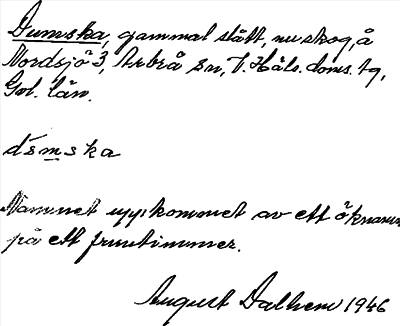 Dumska, gammal slått, nu skog, å
Nordsjö 3, Arbrå sn, V. Häls. doms. tg,
Gvl. län.
dsmska
Namnet uppkommet av ett öknamn
på ett fruntimmer.
August Dalhem 1946